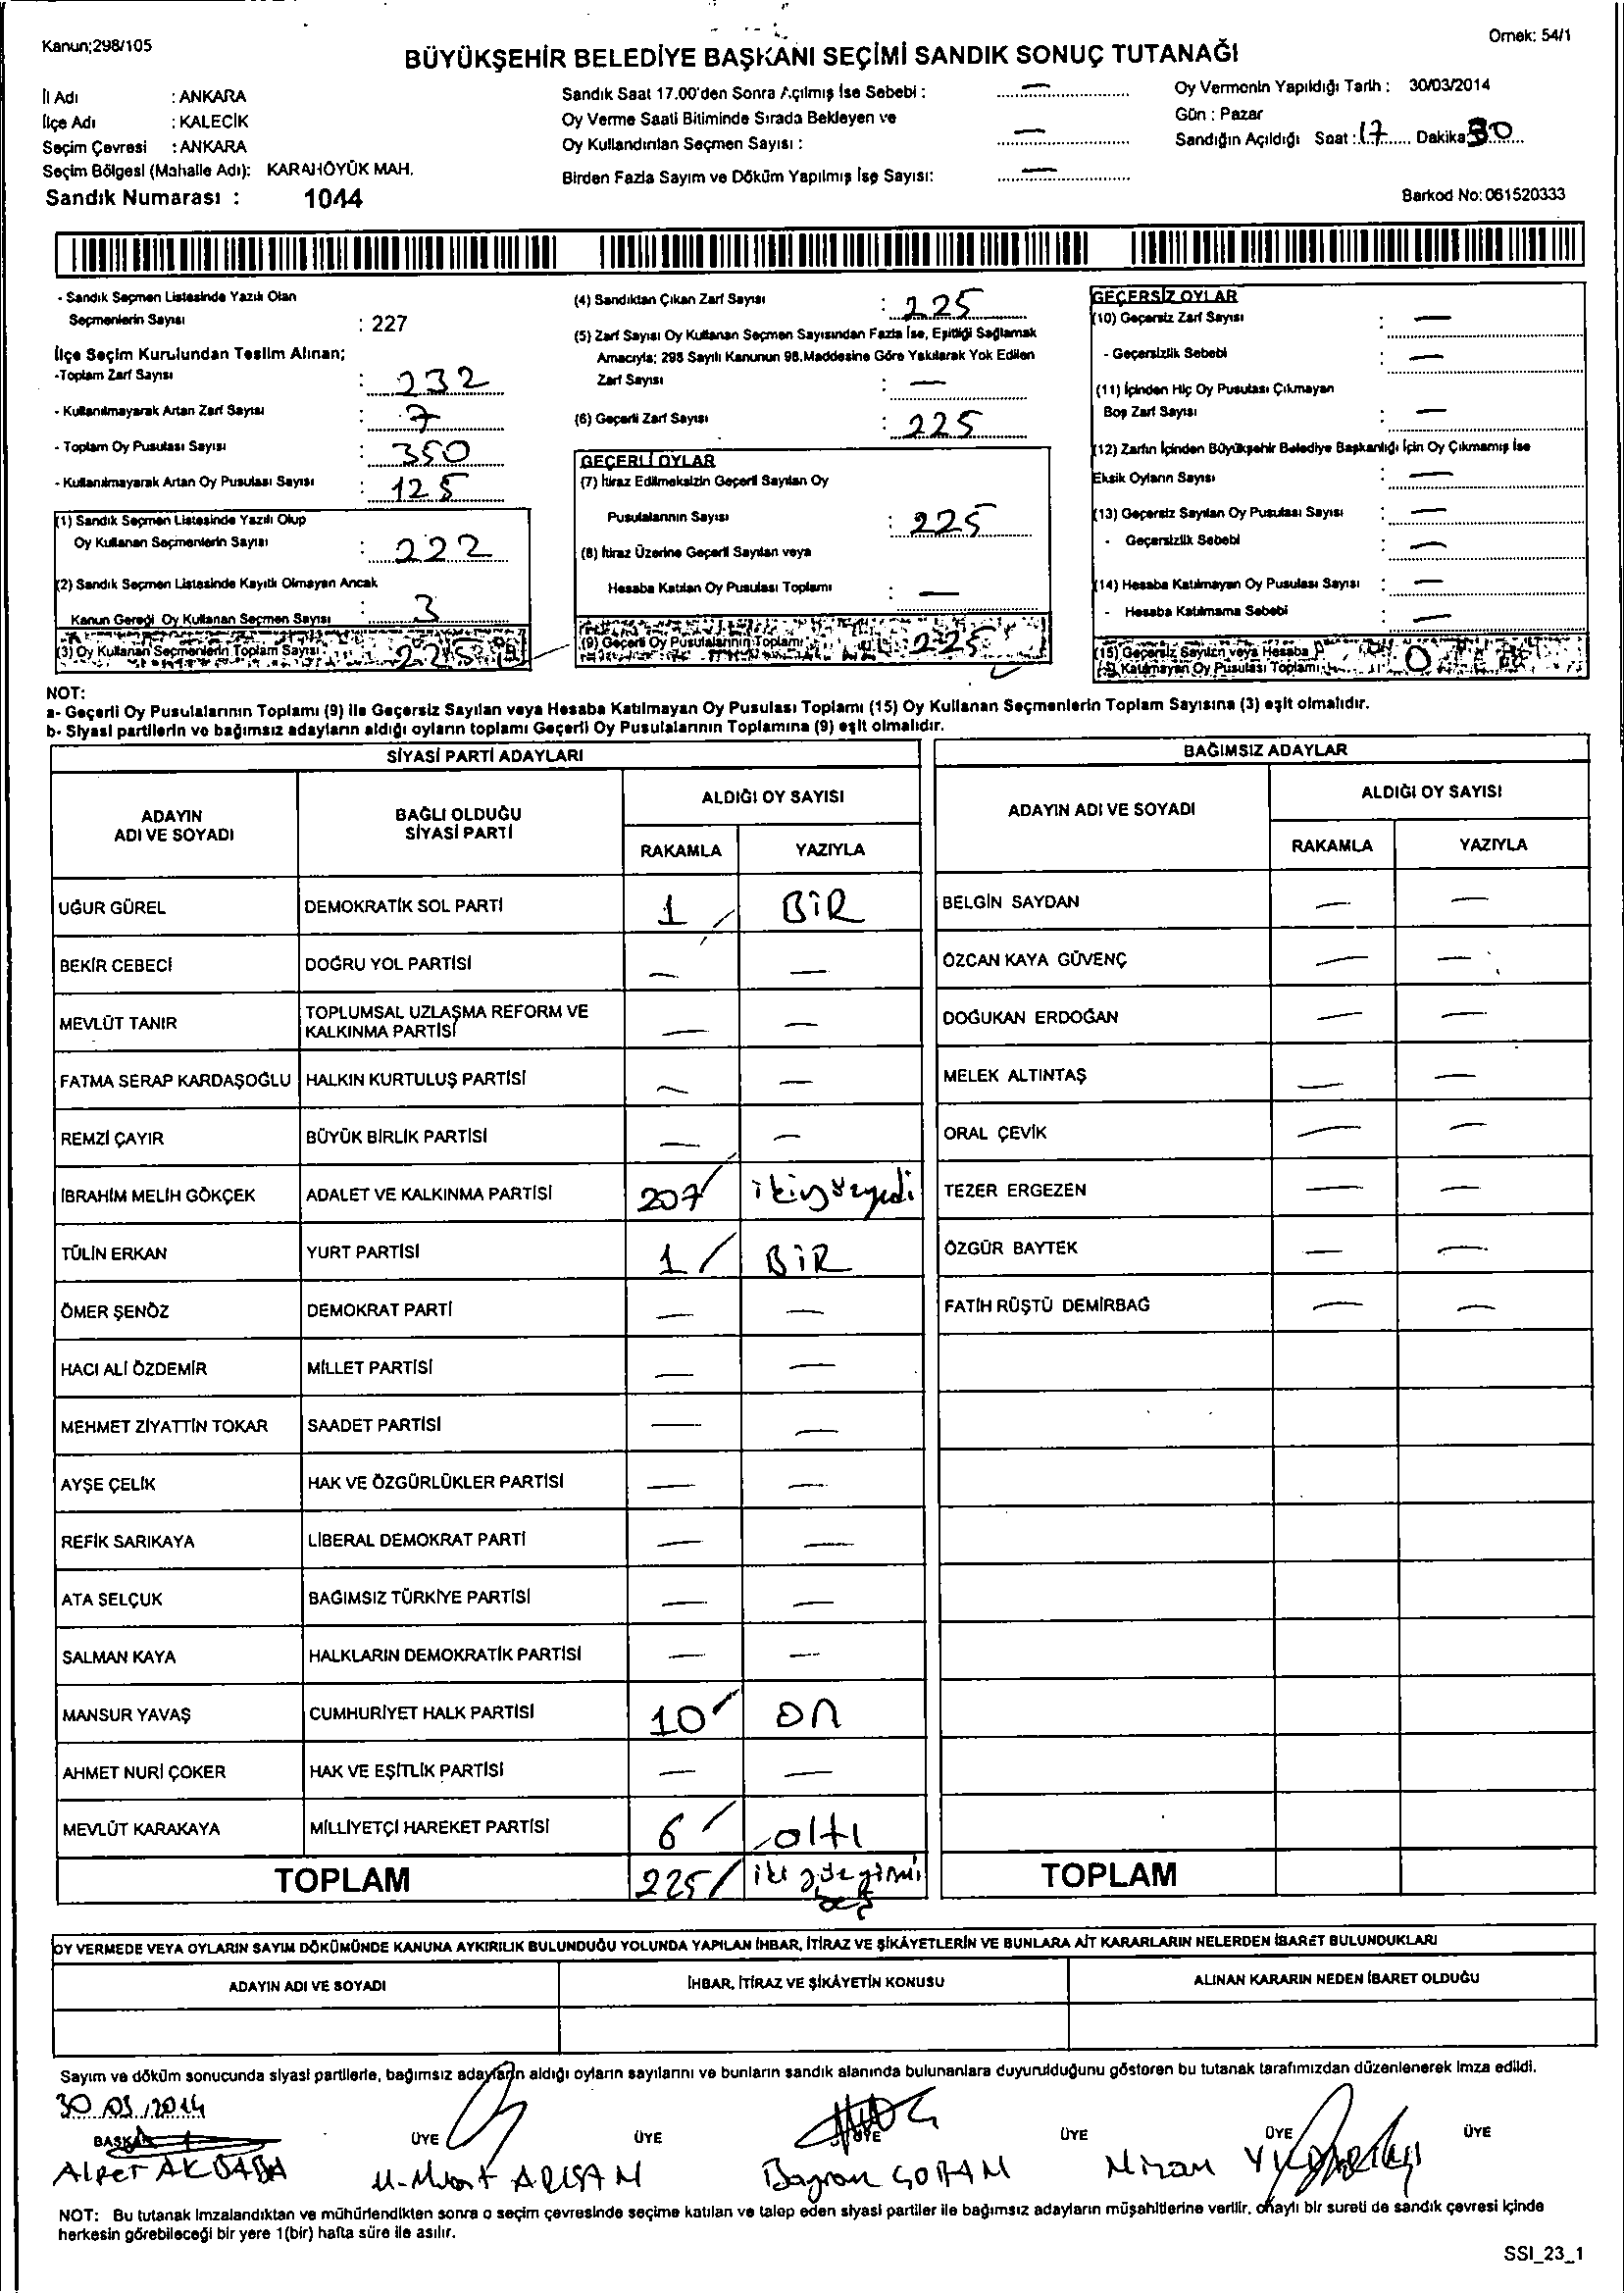 Kanun;298/105
Örnek: 54/1
BÜYÜKŞEHİR BELEDİYE BAŞKANI SEÇİMİ SANDIK SONUÇ TUTANAĞI
İl Adı : ANKARA
İlçe Adı : KALECİK
Seçim Çevresi : ANKARA
Seçim Bölgesi (Mahalle Adı): KARAHÖYÜK MAH.
Sandık Numarası : 1044
Sandık Saat 17.00'den Sonra Açılmış İse Sebebi : —
Oy Verme Saati Bitiminde Sırada Bekleyen ve
Oy Kullandırılan Seçmen Sayısı : —
Birden Fazla Sayım ve Döküm Yapılmış İse Sayısı: —
Oy Vermenin Yapıldığı Tarih : 30/03/2014
Gün : Pazar
Sandığın Açıldığı Saat : 17 Dakika 30
Barkod No: 061520333
- Sandık Seçmen Listesinde Yazılı Olan
Seçmenlerin Sayısı : 227
İlçe Seçim Kurulundan Teslim Alınan;
-Toplam Zarf Sayısı : 232
- Kullanılmayarak Artan Zarf Sayısı : 7
- Toplam Oy Pusulası Sayısı : 350
- Kullanılmayarak Artan Oy Pusulası Sayısı : 125
(1) Sandık Seçmen Listesinde Yazılı Olup
Oy Kullanan Seçmenlerin Sayısı : 222
(2) Sandık Seçmen Listesinde Kayıtlı Olmayan Ancak
Kanun Gereği Oy Kullanan Seçmen Sayısı : 3
(3) Oy Kullanan Seçmenlerin Toplam Sayısı : 225
(4) Sandıktan Çıkan Zarf Sayısı : 225
(5) Zarf Sayısı Oy Kullanan Seçmen Sayısından Fazla İse, Eşitliği Sağlamak
Amacıyla; 298 Sayılı Kanunun 98.Maddesine Göre Yakılarak Yok Edilen
Zarf Sayısı : —
(6) Geçerli Zarf Sayısı : 225
GEÇERLİ OYLAR
(7) İtiraz Edilmeksizin Geçerli Sayılan Oy
Pusulalarının Sayısı : 225
(8) İtiraz Üzerine Geçerli Sayılan veya
Hesaba Katılan Oy Pusulası Toplamı : —
(9) Geçerli Oy Pusulalarının Toplamı 225
GEÇERSİZ OYLAR
(10) Geçersiz Zarf Sayısı : —
- Geçersizlik Sebebi : —
(11) İçinden Hiç Oy Pusulası Çıkmayan
Boş Zarf Sayısı : —
(12) Zarfın İçinden Büyükşehir Belediye Başkanlığı İçin Oy Çıkmamış İse
Eksik Oyların Sayısı : —
(13) Geçersiz Sayılan Oy Pusulası Sayısı : —
- Geçersizlik Sebebi : —
(14) Hesaba Katılmayan Oy Pusulası Sayısı : —
- Hesaba Katılmama Sebebi : —
(15) Geçersiz Sayılan veya Hesaba
Katılmayan Oy Pusulası Toplamı 0
NOT:
a- Geçerli Oy Pusulalarının Toplamı (9) ile Geçersiz Sayılan veya Hesaba Katılmayan Oy Pusulası Toplamı (15) Oy Kullanan Seçmenlerin Toplam Sayısına (3) eşit olmalıdır.
b- Siyasi partilerin ve bağımsız adayların aldığı oyların toplamı Geçerli Oy Pusulalarının Toplamına (9) eşit olmalıdır.
SİYASİ PARTİ ADAYLARI
ADAYIN ADI VE SOYADI BAĞLI OLDUĞU SİYASİ PARTİ ALDIĞI OY SAYISI
RAKAMLA YAZIYLA
UĞUR GÜREL DEMOKRATİK SOL PARTİ 1 BİR
BEKİR CEBECİ DOĞRU YOL PARTİSİ — —
MEVLÜT TANIR TOPLUMSAL UZLAŞMA REFORM VE KALKINMA PARTİSİ — —
FATMA SERAP KARDAŞOĞLU HALKIN KURTULUŞ PARTİSİ — —
REMZİ ÇAYIR BÜYÜK BİRLİK PARTİSİ — —
İBRAHİM MELİH GÖKÇEK ADALET VE KALKINMA PARTİSİ 207 ikiyüzyedi
TÜLİN ERKAN YURT PARTİSİ 1 BİR
ÖMER ŞENÖZ DEMOKRAT PARTİ — —
HACI ALİ ÖZDEMİR MİLLET PARTİSİ — —
MEHMET ZİYATTİN TOKAR SAADET PARTİSİ — —
AYŞE ÇELİK HAK VE ÖZGÜRLÜKLER PARTİSİ — —
REFİK SARIKAYA LİBERAL DEMOKRAT PARTİ — —
ATA SELÇUK BAĞIMSIZ TÜRKİYE PARTİSİ — —
SALMAN KAYA HALKLARIN DEMOKRATİK PARTİSİ — —
MANSUR YAVAŞ CUMHURİYET HALK PARTİSİ 10 on
AHMET NURİ ÇOKER HAK VE EŞİTLİK PARTİSİ — —
MEVLÜT KARAKAYA MİLLİYETÇİ HAREKET PARTİSİ 6 altı
TOPLAM 225 iki yüz yirmi beş
BAĞIMSIZ ADAYLAR
ADAYIN ADI VE SOYADI ALDIĞI OY SAYISI
RAKAMLA YAZIYLA
BELGİN SAYDAN — —
ÖZCAN KAYA GÜVENÇ — —
DOĞUKAN ERDOĞAN — —
MELEK ALTINTAŞ — —
ORAL ÇEVİK — —
TEZER ERGEZEN — —
ÖZGÜR BAYTEK — —
FATİH RÜŞTÜ DEMİRBAĞ — —
TOPLAM
OY VERMEDE VEYA OYLARIN SAYIM DÖKÜMÜNDE KANUNA AYKIRILIK BULUNDUĞU YOLUNDA YAPILAN İHBAR, İTİRAZ VE ŞİKÂYETLERİN VE BUNLARA AİT KARARLARIN NELERDEN İBARET BULUNDUKLARI
ADAYIN ADI VE SOYADI İHBAR, İTİRAZ VE ŞİKÂYETİN KONUSU ALINAN KARARIN NEDEN İBARET OLDUĞU
Sayım ve döküm sonucunda siyasi partilerle, bağımsız adayların aldığı oyların sayılarını ve bunların sandık alanında bulunanlara duyurulduğunu gösteren bu tutanak tarafımızdan düzenlenerek imza edildi.
30.03.2014
BAŞKAN ÜYE ÜYE ÜYE ÜYE ÜYE ÜYE
Alper AKBABA Bayram ÇOBAN
NOT: Bu tutanak imzalandıktan ve mühürlendikten sonra o seçim çevresinde seçime katılan ve talep eden siyasi partiler ile bağımsız adayların müşahitlerine verilir. onaylı bir sureti de sandık çevresi içinde
herkesin görebileceği bir yere 1(bir) hafta süre ile asılır.
SSI_23_1